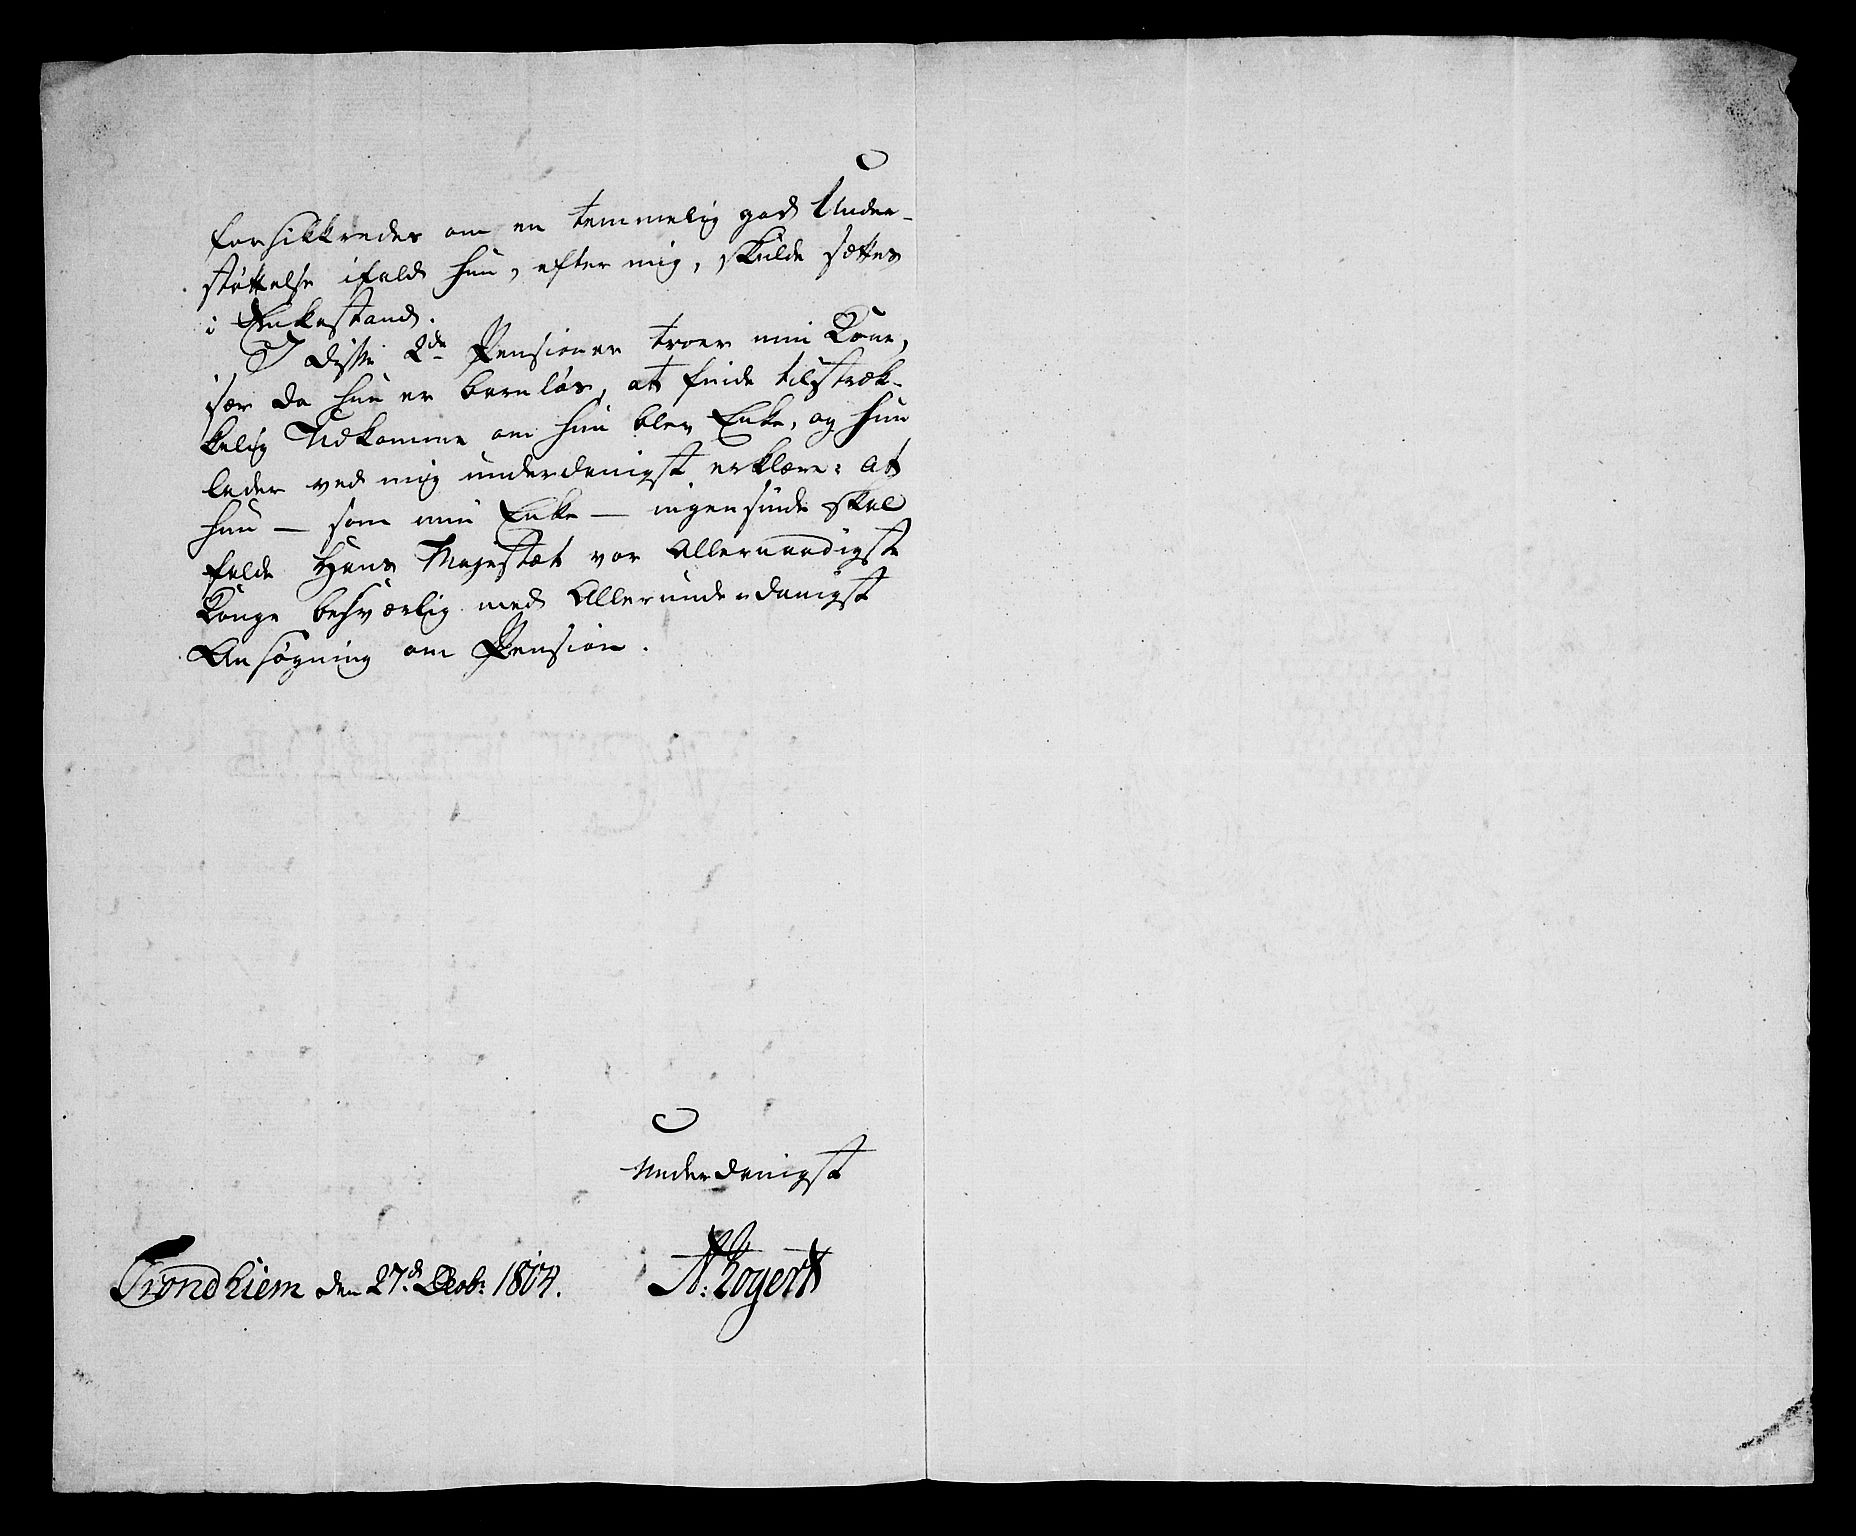 forsikkredes om en temmelig god Under-
støttelse ifald hun, efter mig, skulde sættes
i Enkestand.
I disse 2de Pensioner troer min Kone,
især da hun er barnløs, at finde tilstræk-
kelig Udkomme om hun blev Enke, og hun
lader ved mig underdanigst erklære: at
hun — som min Enke — ingensinde skal
falde Hans Majestæt vor Allernaadigste
Konge besværlig med Allerunderdanigst
Ansøgning om Pension.
Underdanigst
Trondhiem den 27d. Octobr: 1804.
A: Rogert